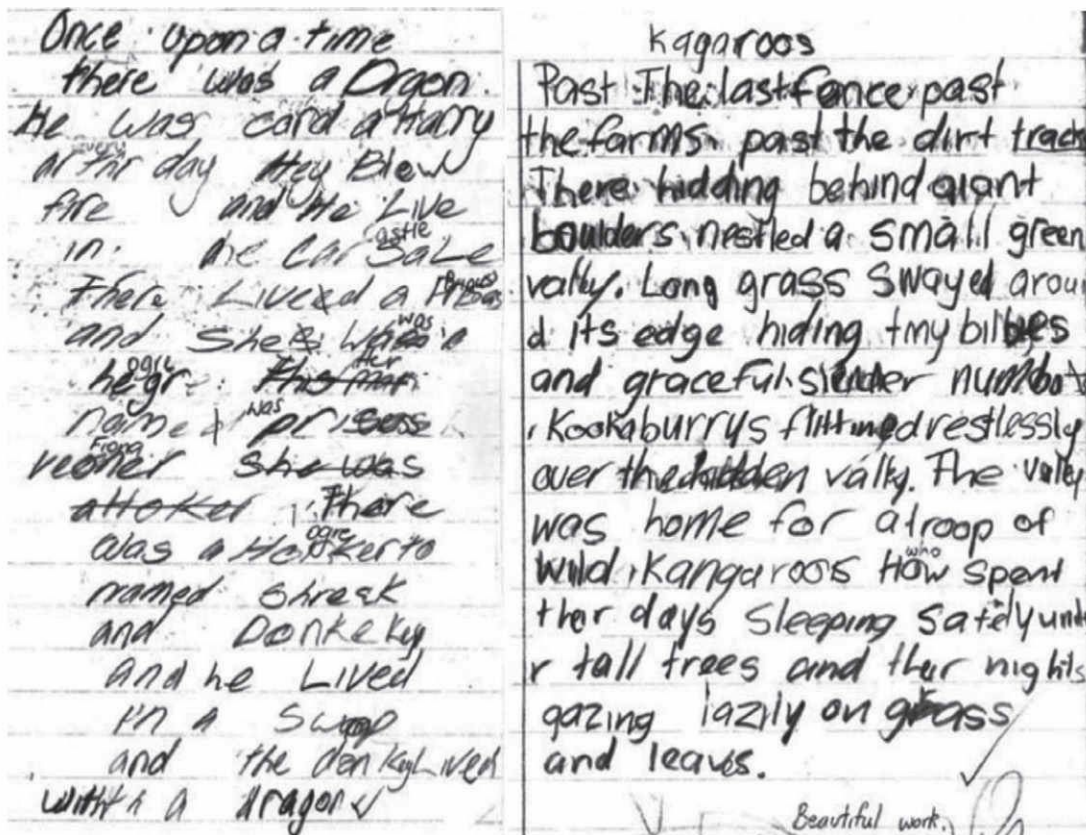 Once upon a time
there was a Drgon.
He was card a Harry
every
day Hey Blew
fire and He Live
in. he Car
astle
There Livexd a
Princess
and She was a
was
ogre
Her
name was
Fiona
She was
There
was a to
ogre
named Shreak
and Donkekey
and he Lived
in a Swop
and the donkyLived
with a dragon
Kagaroos
Past The last Fence past
the farms. past the dirt track
There hidding behind giant
boulders nestled a small green
vally. Long grass swayed aroun
d its edge hiding tiny bilbies
and graceful slender numbat
, Kookaburrys flittingedrestlessly
over the hidden vally. The vally
was home for a troop of
wild, Kangaroos How spent
who
ther days Sleeping Safely unde
r tall trees and ther nights
gazing lazily on grass
and leaves.
Beautiful work.